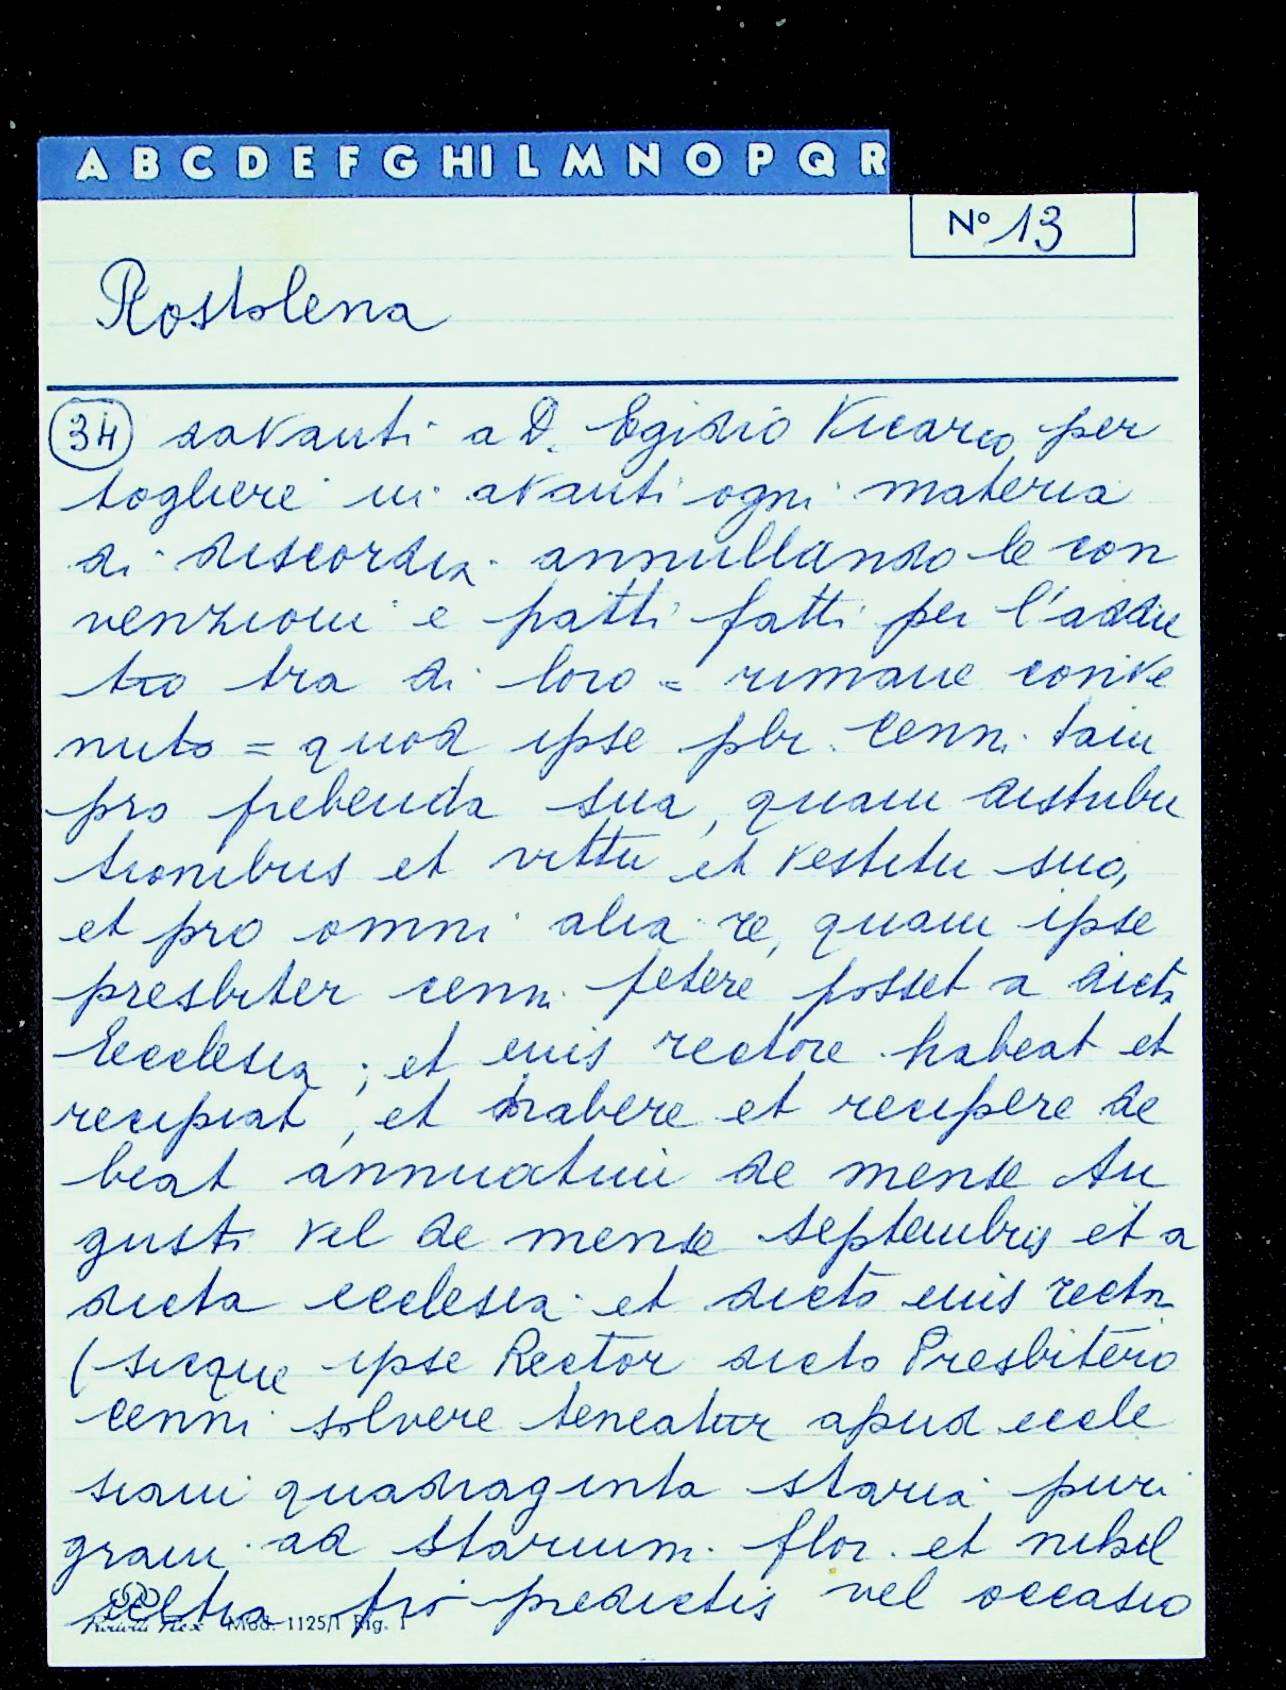 A B C D E F G H I L M N O P Q R
Nº 13
Rostolena
34 davanti a D. Egidio Vicario per
togliere in avanti ogni materia
di discordia annullando le con
venzioni e patti fatti per l'addie
tro tra di loro = rimane conve
nuto = quod ipse pbr. Cenni tam
pro prebenda sua, quam distribu
tionibus et vittu et vestitu suo,
et pro omni alia re, quam ipse
presbiter cenni petere posset a dicta
Ecclesia ; et euis rectore habeat et
recipiat, et habere et recipere de
beat annuatim de mense Au
gusti vel de mense septembris et a
dicta ecclesia et dicto euis rectore
(sicque ipse Rector dicto Presbitero
Cenni solvere teneatur apud eccle
siam quadraginta staria puri
grani ad starium flor. et nihil
ultra pro predictis vel occasio
Mod. 1125/1 Rig. 1